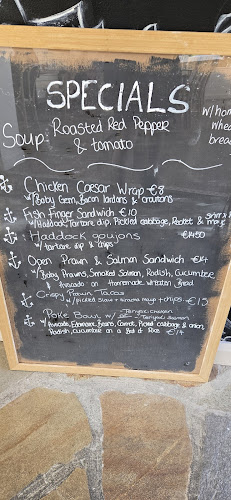 SPECIALS
Soup: Roasted Red Pepper
& tomato
w/ hom
whea
brea
Chicken Caesar Wrap €8
w/ Baby Gem, Bacon lardons & croutons
Fish Finger Sandwich €10
w/ Haddock, Tartare dip, Pickled cabbage, Rocket &
Haddock goujons €14.50
w/ tartare dip & chips
Open Prawn & Salmon Sandwich €14
w/ Baby Prawns, Smoked Salmon, Radish, Cucumber
& Avocado on Homemade wheaten Bread
Crispy Prawn Tacos
w/ pickled slaw + sriracha mayo + chips - €15
Poke Bowl w/ Teriyaki Chicken
or Teriyaki Salmon
w/ Avocado, Edamame Beans, Carrot, Pickled cabbage & onion,
Radish, Cucumber on a Bed of Rice €14